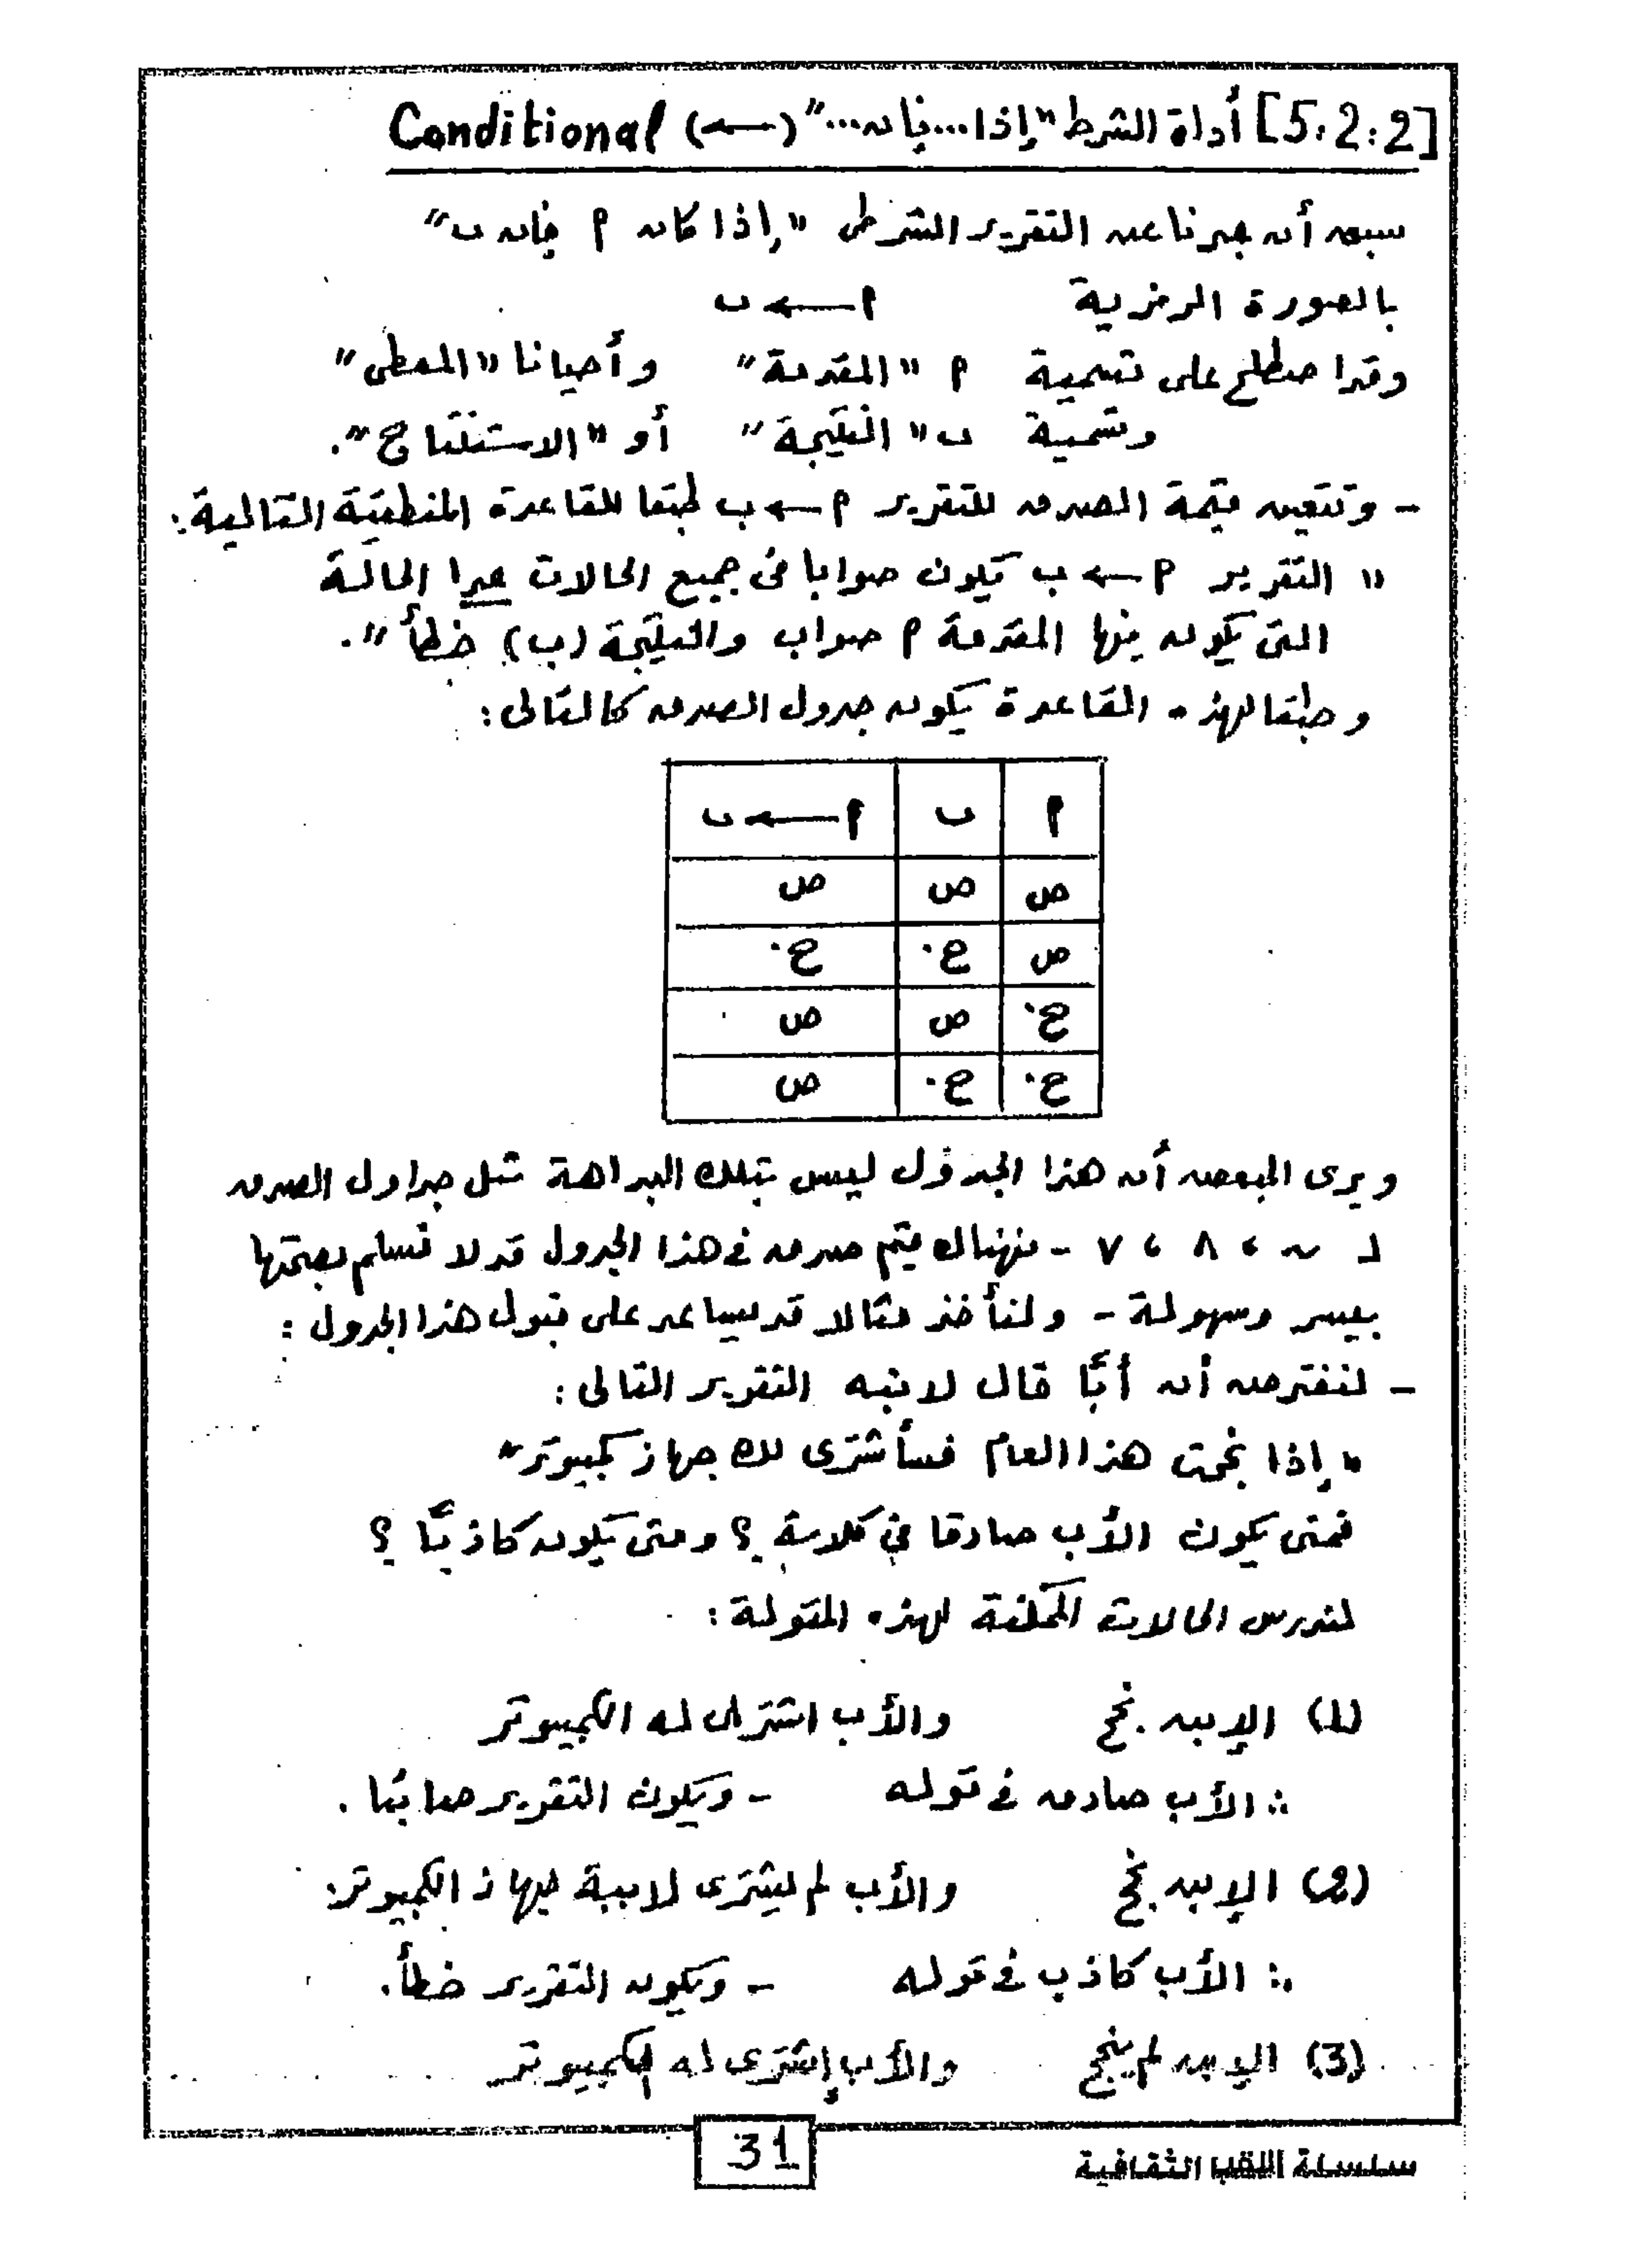 [5.2:2] أداة الشرط "إذا... فإن..." (←) Conditional
سبق أن عبرنا عن التقرير الشرطى "إذا كان م فإن ب"
بالصورة الرمزية م ← ب
وقد اصطلح على تسمية م "المقدمة" وأحيانا "المعطى"
وتسمية ب "النتيجة" أو "الاستنتاج".
- وتتعين قيمة الصدق للتقرير م ← ب طبقا للقاعدة المنطقية التالية:
"التقرير م ← ب تكون صوابا فى جميع الحالات عدا الحالة
التى يكون فيها المقدمة م صواب والنتيجة (ب) خطأ".
وطبقا لهذه القاعدة يكون جدول الصدق كالتالى:
م ب م ← ب
ص ص ص
ص خ خ
خ ص ص
خ خ ص
ويرى البعض أن هذا الجدول ليس بتلك البداهة مثل جداول الصدق
لـ ~ ، ∧ ، ∨ - فهناك قيم صدق فى هذا الجدول قد لا نسلم بصحتها
بيسر وسهولة - ولنأخذ مثالا قد يساعد على قبول هذا الجدول :
- لنفترض أن أبًا قال لابنه التقرير التالى :
"إذا نجحت هذا العام فسأشترى لك جهاز كمبيوتر"
فمتى يكون الأب صادقا فى كلامه ؟ ومتى يكون كاذبًا ؟
لندرس الحالات الممكنة لهذه المقولة :
(1) الإبن نجح والأب اشترى له الكمبيوتر
∴ الأب صادق فى قوله - ويكون التقرير صائبًا .
(2) الإبن نجح والأب لم يشترى لابنه جهاز الكمبيوتر.
∴ الأب كاذب فى قوله - ويكون التقرير خطأ.
(3) الإبن لم ينجح والأب إشترى له الكمبيوتر
31
سلسلة اللقب الثقافية